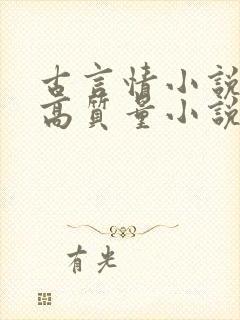 古言情小說
高質量小說
有光